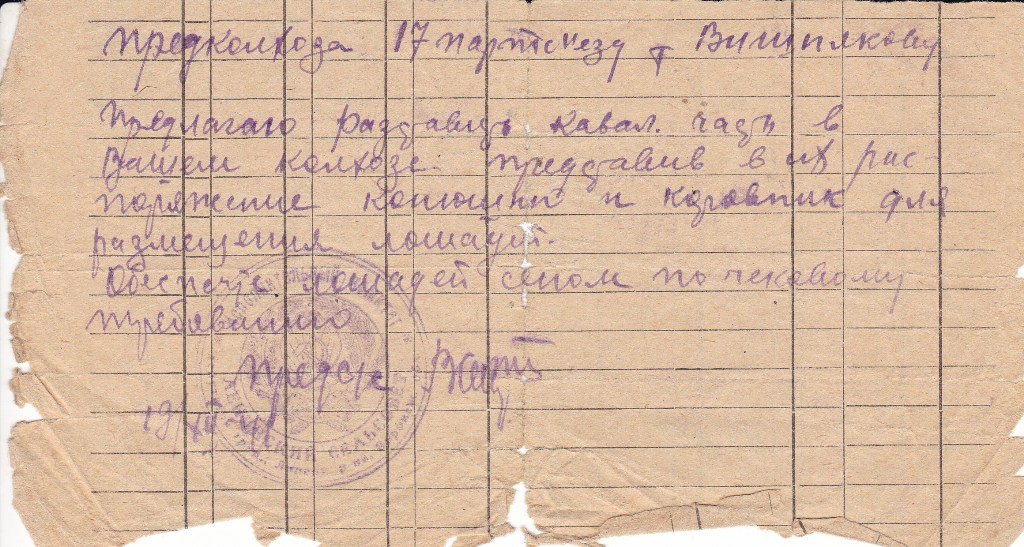 Предколхоза 17 партсъезду т Вишнякову
Предлагаю раздавить кавал. части в
Вашем колхозе. предоставив в их рас-
поряжение конюшни и коровник для
размещения лошадей.
Обеспечте лошадей сеном по чековому
требованию
Предс/с
19/XII
СЕЛЬСОВЕТ